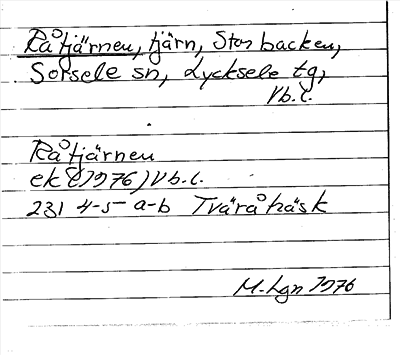 Råtjärnen, tjärn, Storbacken,
Sorsele sn, Lycksele tg,
Vb.l.
Råtjärnen
ek (1976) Vb.l.
231 4-5 a-b Tväråträsk
M. Lgn 1976